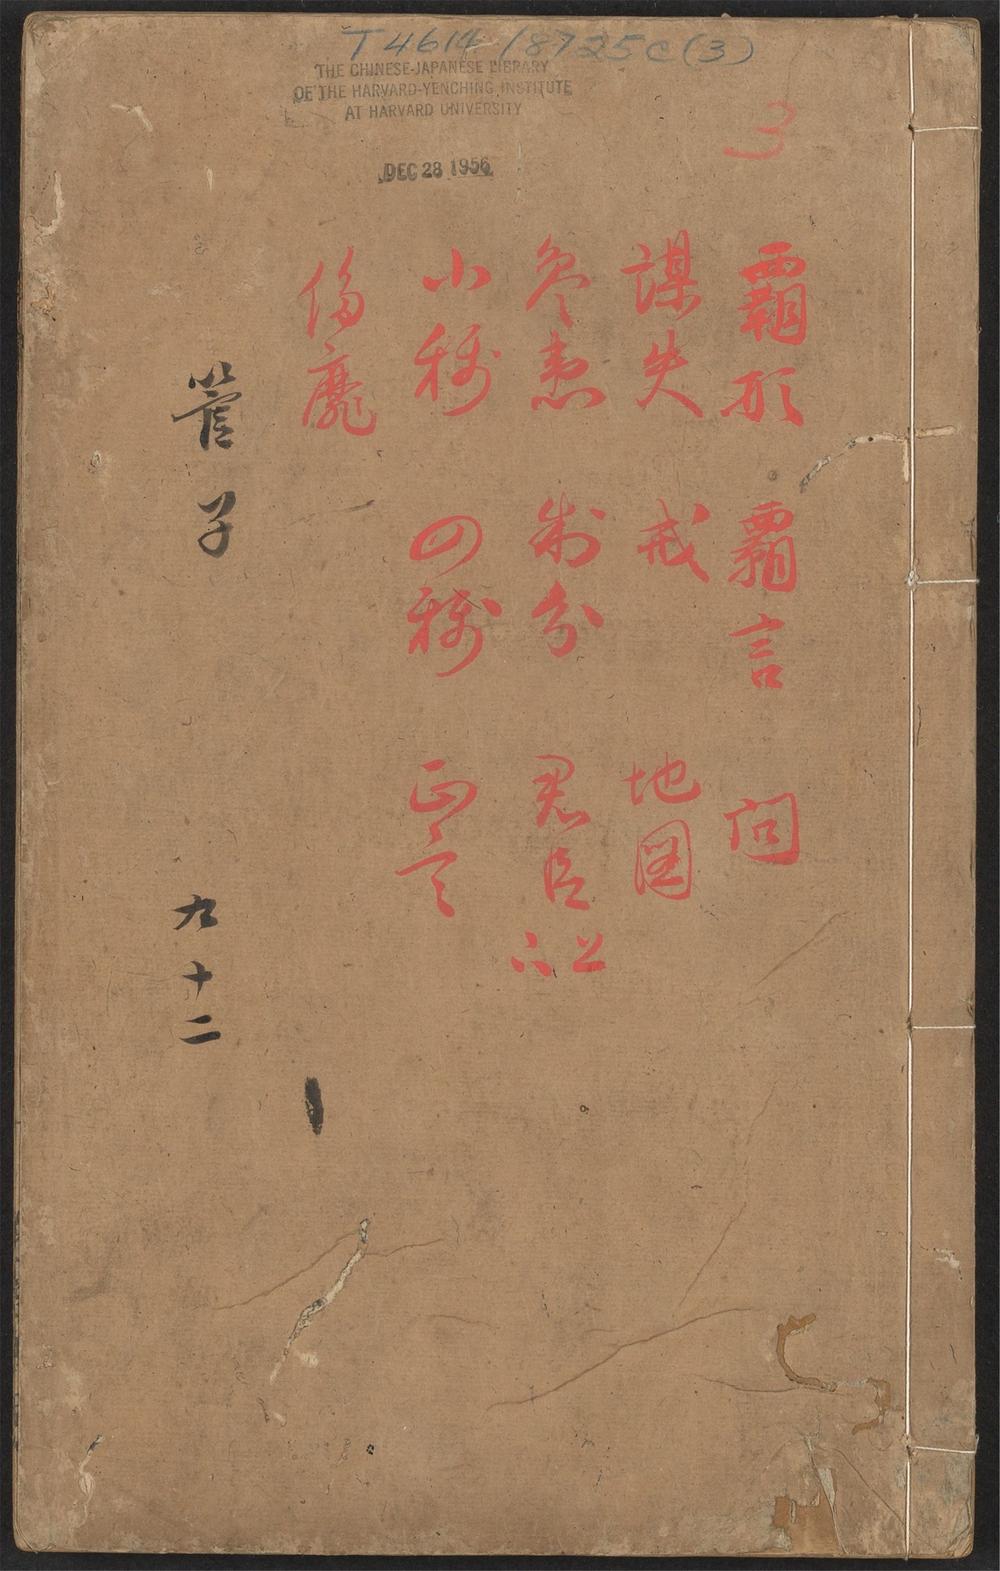 T 4614 / 8725C (3)
THE CHINESE-JAPANESE LIBRARY
OF THE HARVARD-YENCHING INSTITUTE
AT HARVARD UNIVERSITY
DEC 28 1956
3
霸形 霸言 問
謀失 戒 地図
参患 制分 君臣上下
小稱 四稱 正言
侈靡
管子 九 十二